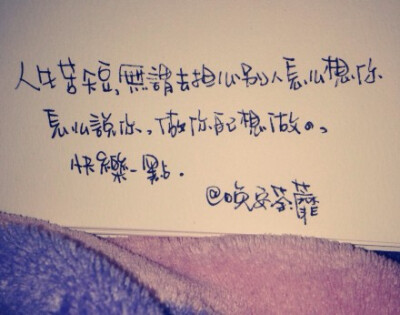 人生苦短,無謂去担心別人怎么想你
怎么說你,做你自己想做の,
快樂一點.
@晚安荼蘼